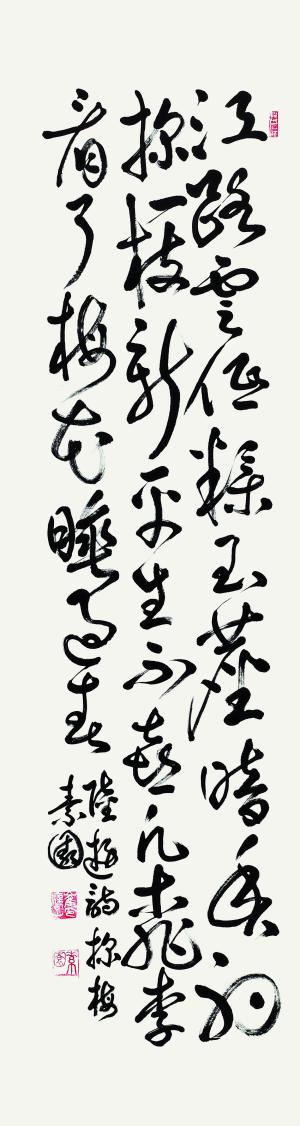 江路雲低糝玉塵暗香初
探一枝新平生不喜凡桃李
看了梅花睡過春
陸游詩探梅
素園